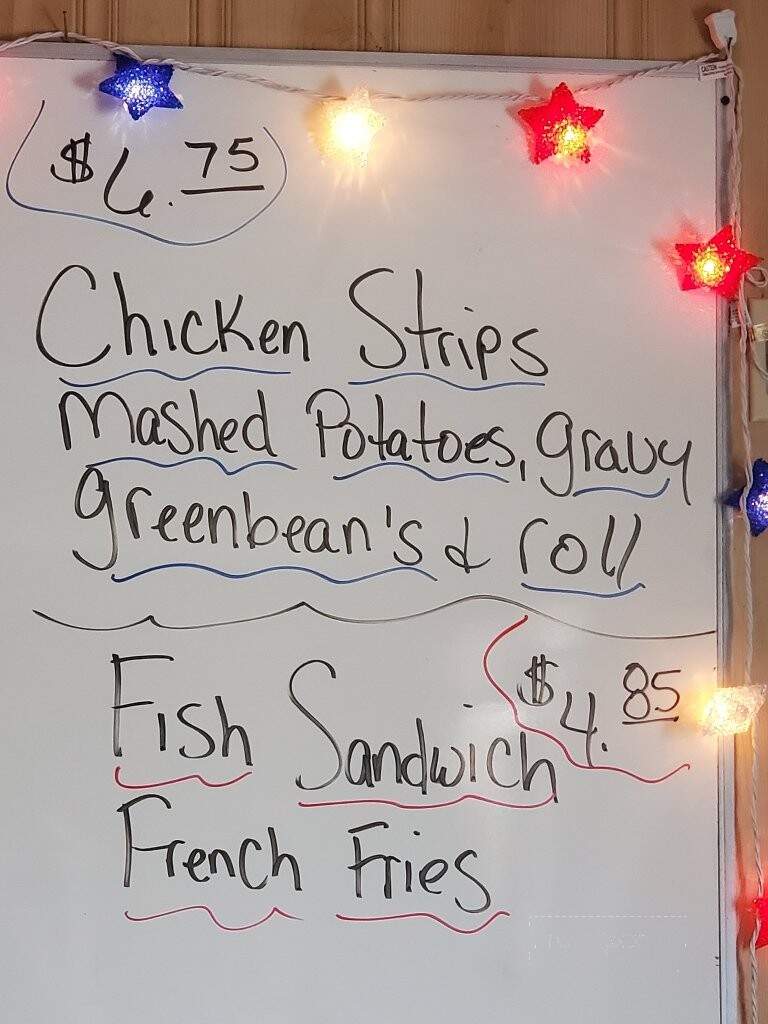 $6.75
Chicken Strips
Mashed Potatoes, gravy
greenbean's & roll
$4.85
Fish Sandwich
French Fries
CAUTION